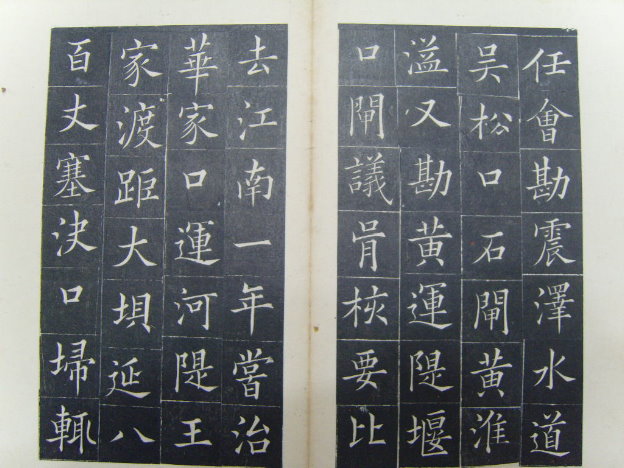 任會勘震澤水道
吴松口石閘黃淮
溢又勘黃運隄堰
口閘議胥核要比
去江南一年嘗治
華家口運河隄王
家渡距大垻延八
百丈塞決口埽輒